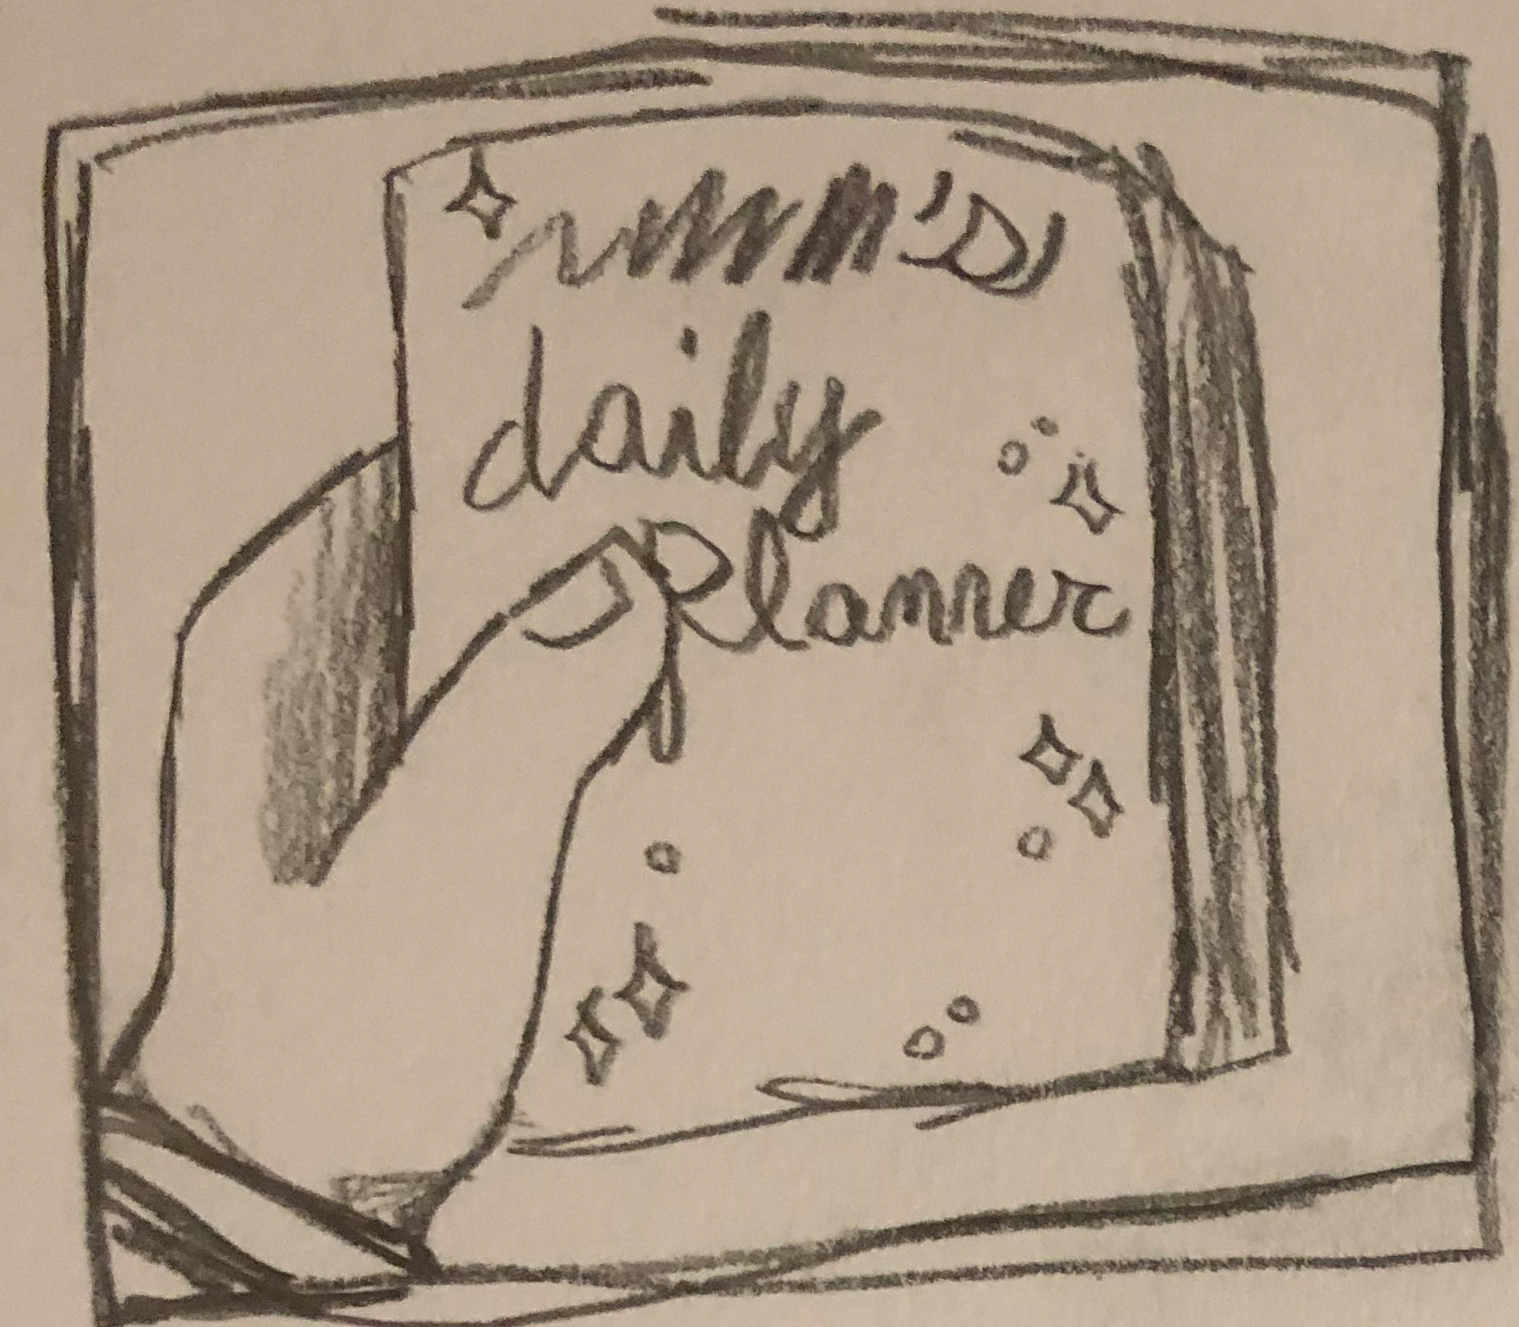 daily
Planner